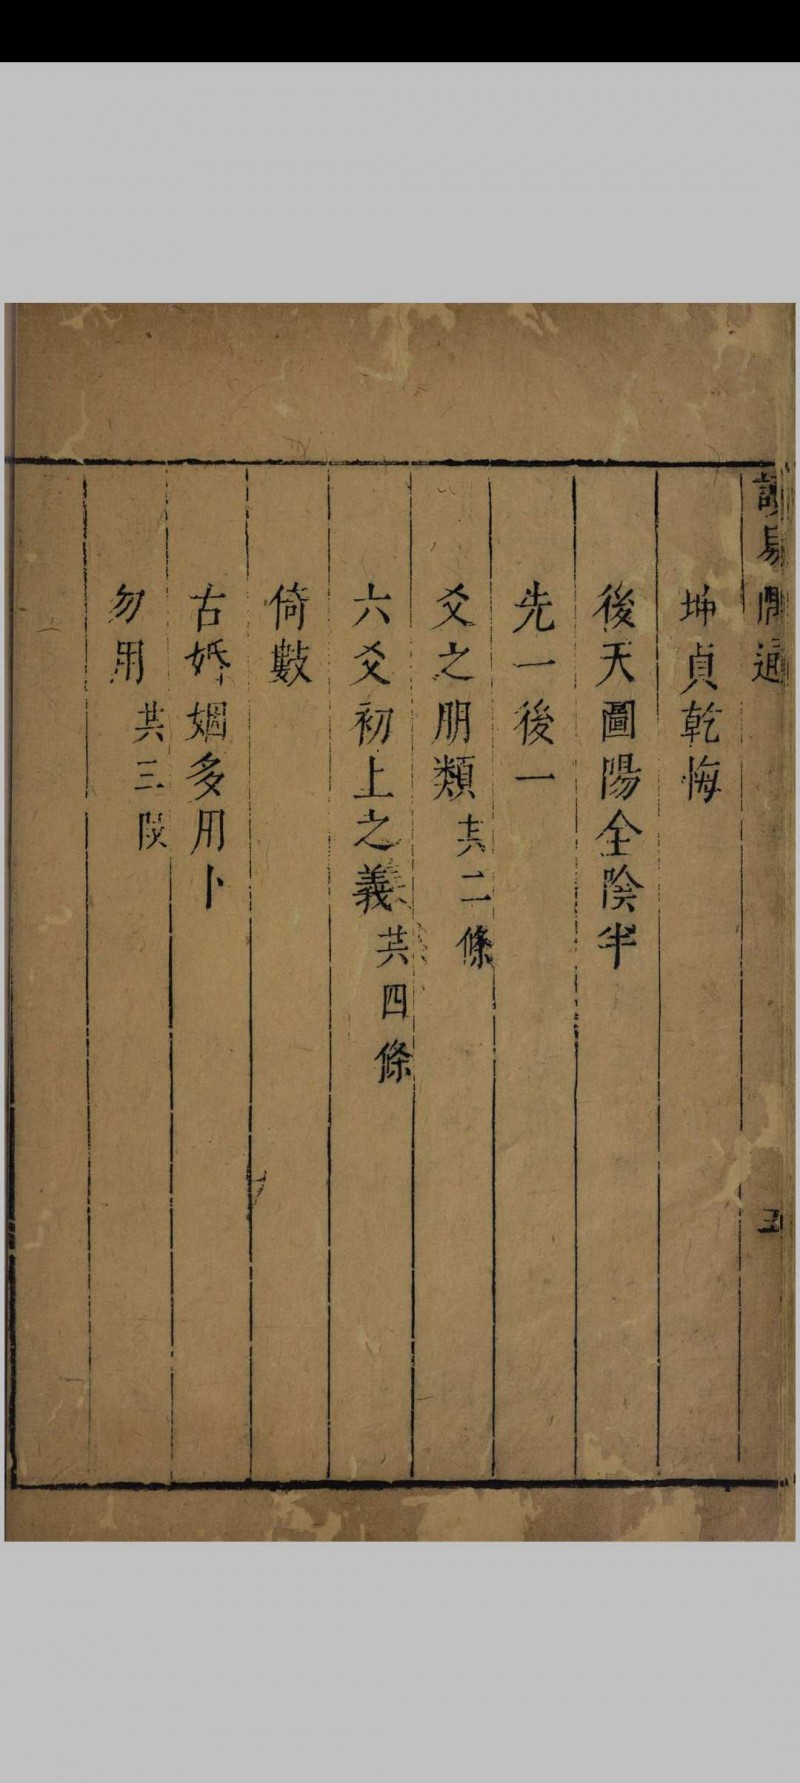 讀易
坤貞乾悔
後天圖陽全陰半
先一後一
爻之朋類 共二條
六爻初上之義 共四條
倚數
古婚姻多用卜
勿用 共三段